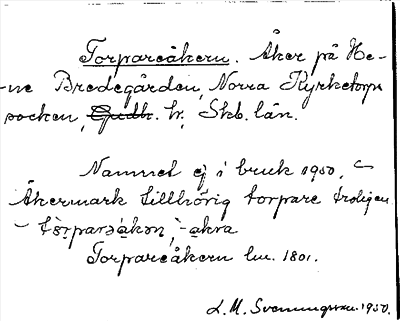 Torpareåkern. Åker på He-
ne Bredegården, Norra Kyrketorps
socken, Gudh. hr, Skb. län.
Namnet ej i bruk 1950.
Åkermark tillhörig torpare troligen
Torpareåkern lm. 1801.
L. M. Svenungsson. 1950.